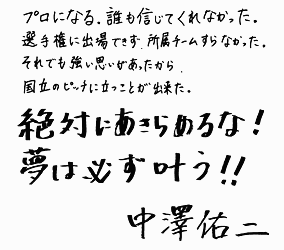 プロになる。誰も信じてくれなかった。
選手権に出場できず、所属チームすらなかった。
それでも強い思いがあったから
国立のピッチに立つことが出来た。
絶対にあきらめるな!
夢は必ず叶う!!
中澤佑二